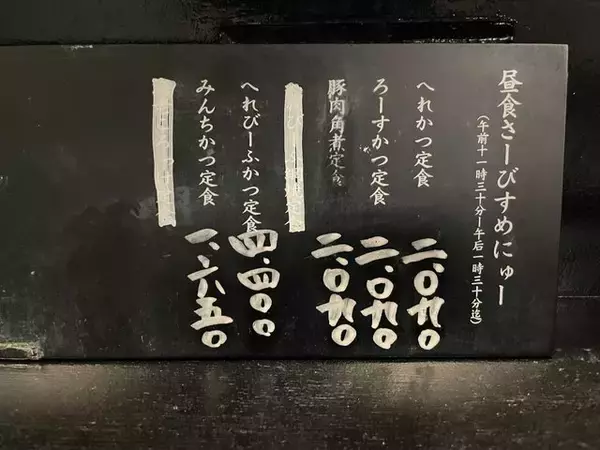 昼食さーびすめにゅー
(午前十一時三十分ー午后一時三十分迄)
へれかつ定食 二、〇九〇
ろーすかつ定食 二、〇九〇
豚肉角煮定食 二、〇九〇
へれびーふかつ定食 四、四〇〇
みんちかつ定食 一、六五〇